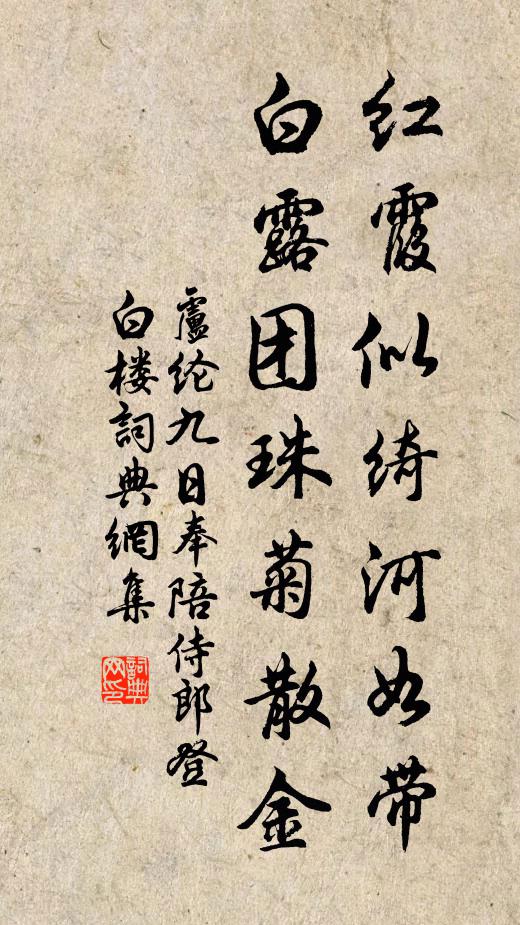 红霞似绮河如带
白露团珠菊散金
盧纶九日奉陪侍郎登
白楼詞典網集
詞典网印